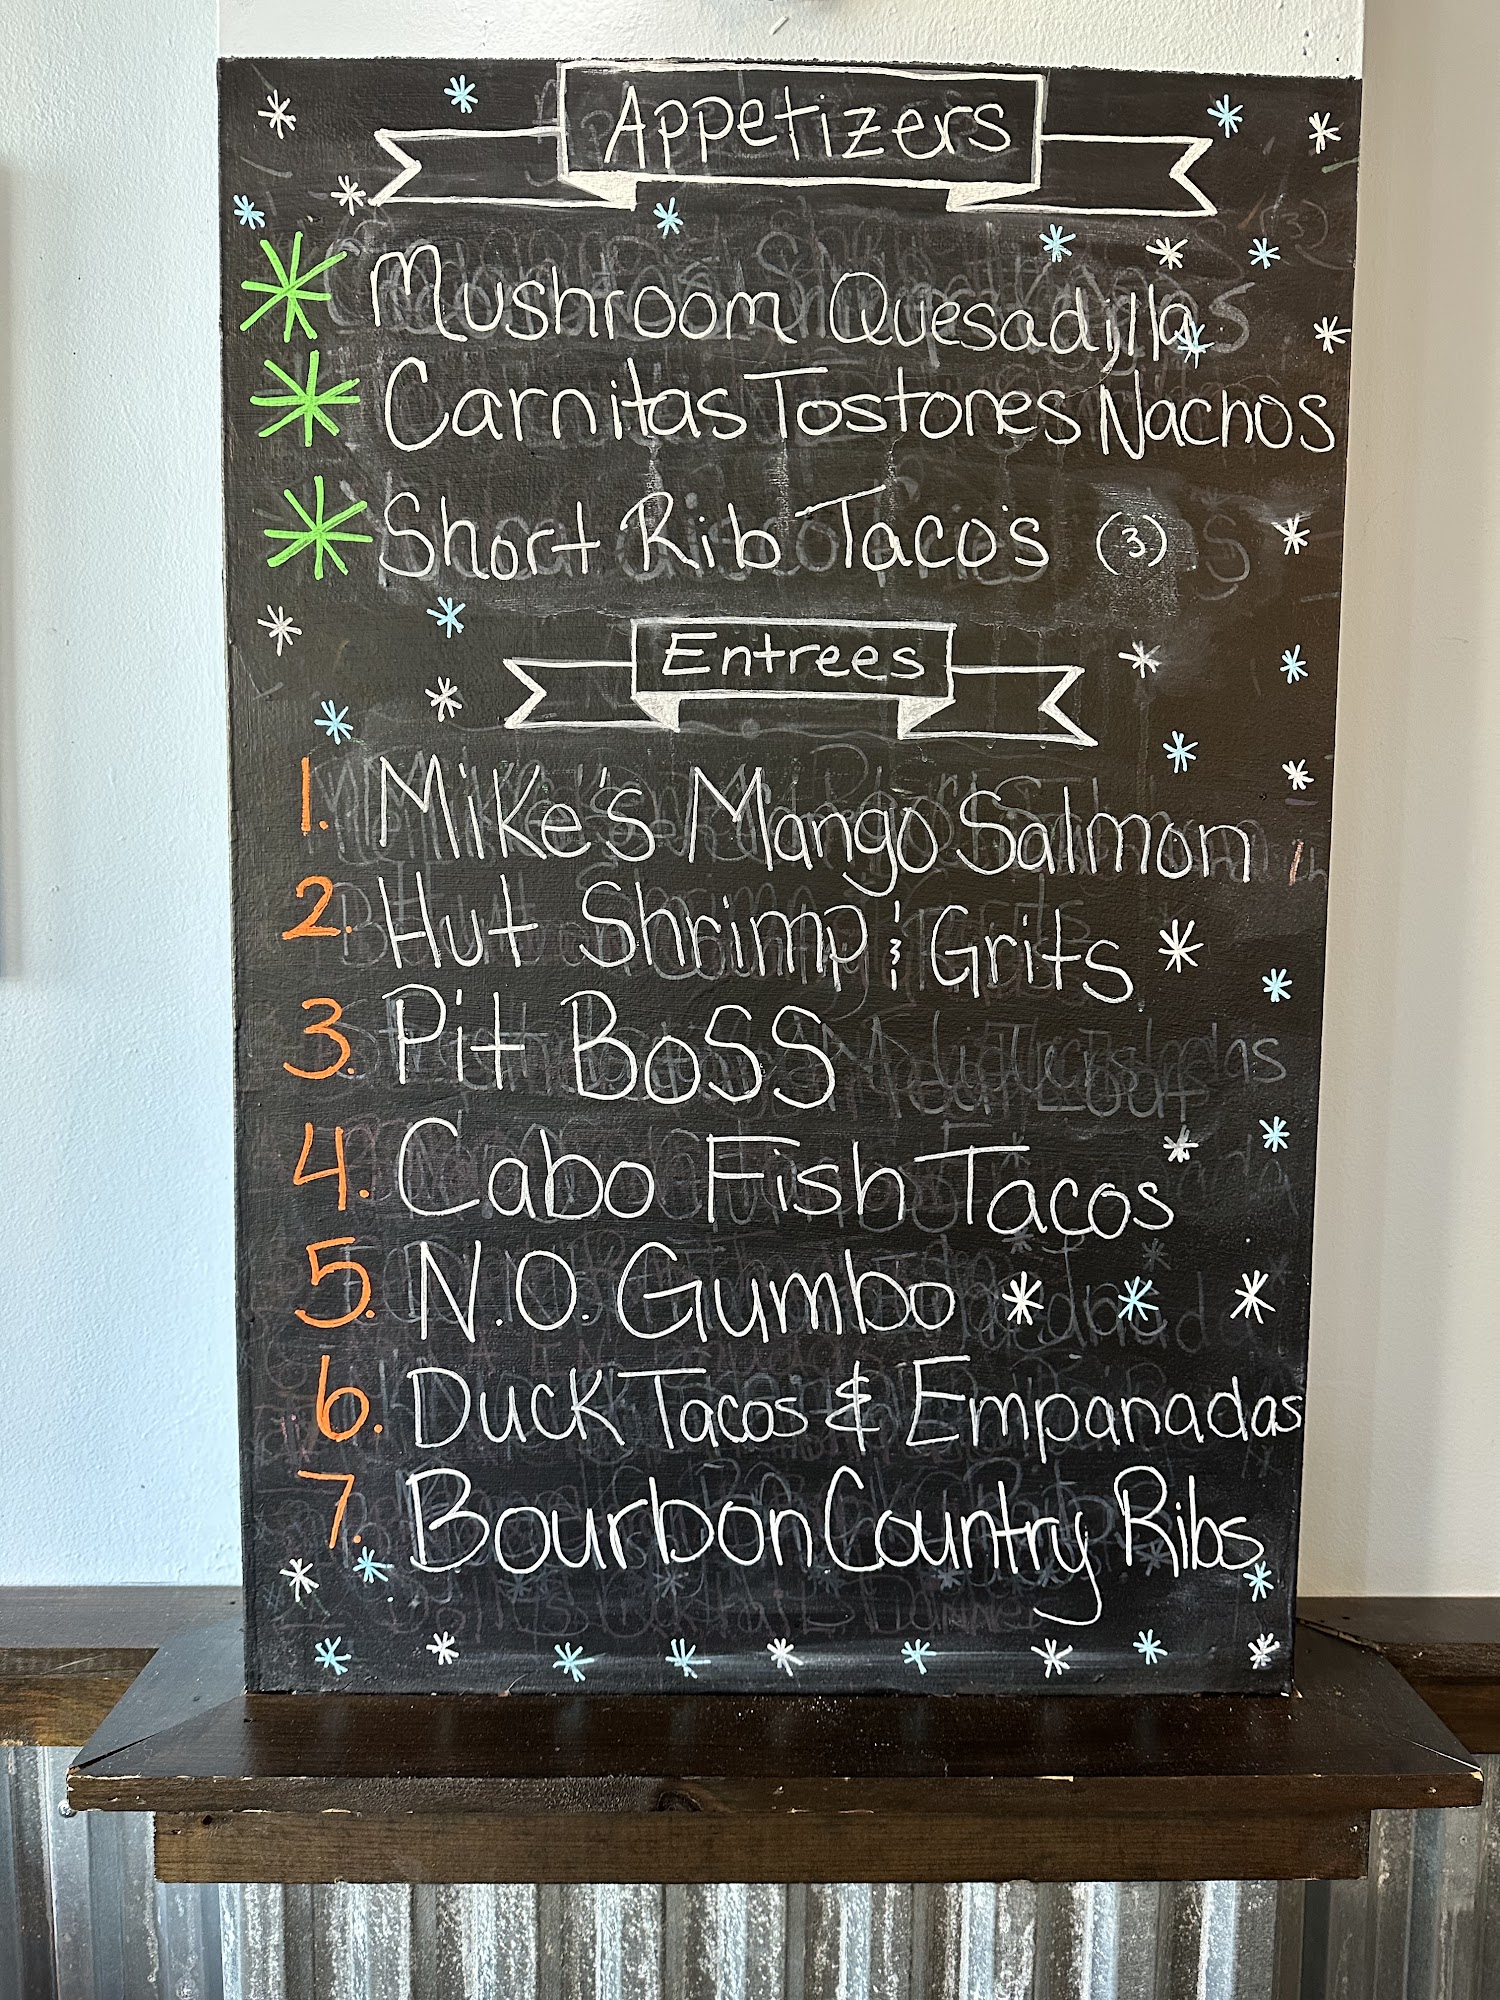 Appetizers
Mushroom Quesadilla
Carnitas Tostones Nachos
Short Rib Taco's (3)
Entrees
1. Mike's Mango Salmon
2. Hut Shrimp & Grits
3. Pit BoSS
4. Cabo Fish Tacos
5. N.O. Gumbo
6. Duck Tacos & Empanadas
7. Bourbon Country Ribs